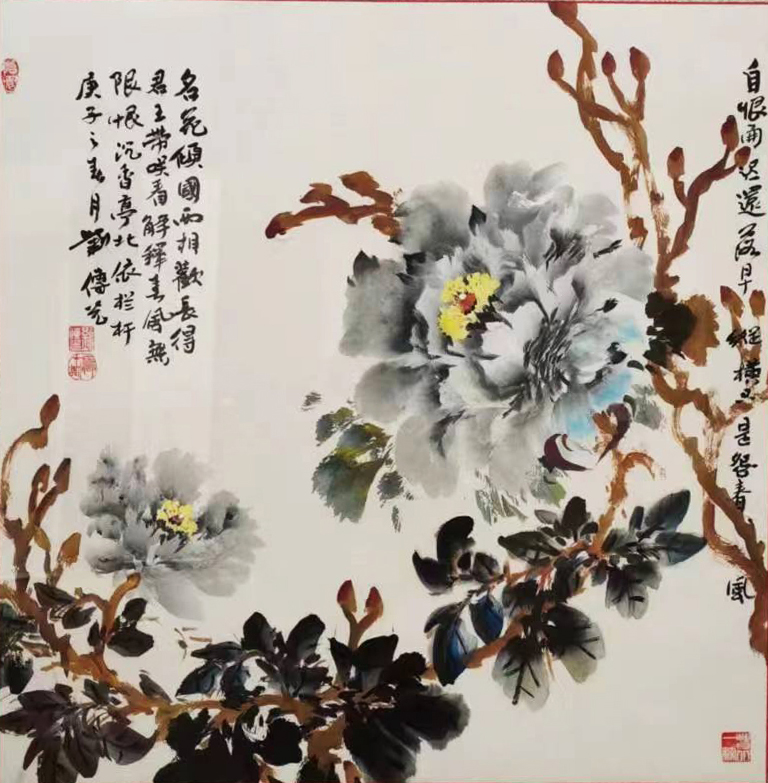 自恨開遲還落早縱橫又是怨春風
名花傾國两相歡長得
君王带咲看解釋春風無
限恨沉香亭北依栏杆
庚子之春月劉傳